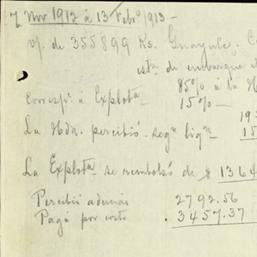 7 Nov 1912 á 13 Febº/913 —
v/. de 355899 Ks. Guayule. C
est n. de embarque d
85% á la H
Corresp. á Explotn. 15%—
19
La Hda. percibió. segn. liqn. 15
La Explotn. se rembolsó de $ 1364
Percibió además 2792.56
Pagó por costo . 3457.37